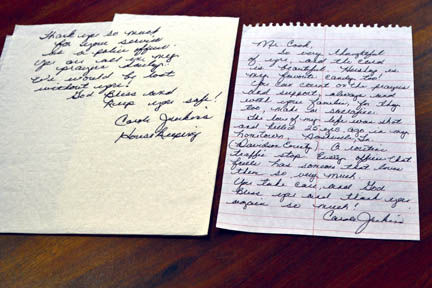 Thank you so much
for your service
as a police officer.
You are all in my
prayers daily!
We would be lost
without you!
God Bless and
keep you safe!
Carole Jenkins
Housekeeping
Mr. Cook,
So very thoughtful
of you, and the card
is beautiful. Hershey is
my favorite candy too!
You can count on the prayers
and support, always and
with your families, for they
too, make a sacrifice.
The love of my life was shot
and killed 25 yrs. ago in my
hometown, Nashville, Tn
(Davidson County). A routine
traffic stop. Every officer that
falls has someone that loves
them so very much.
You take care, and God
Bless you and thank you
again so much!
Carole Jenkins